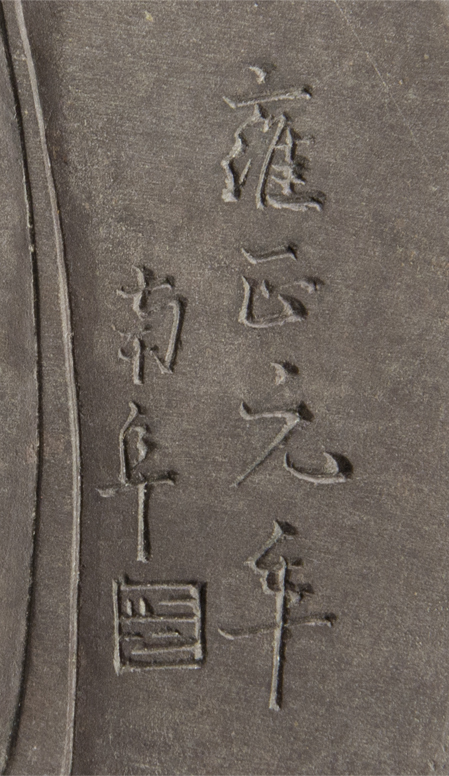 雍正元年
南阜